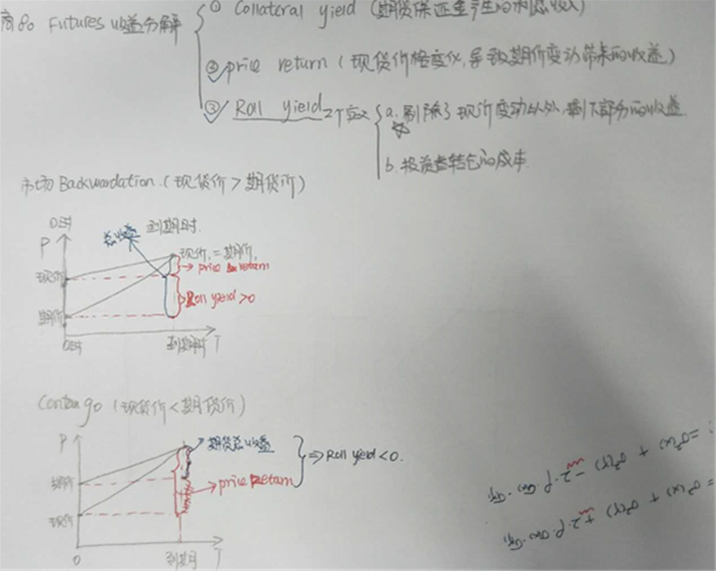 商品 Futures 收益分解
① Collateral yield (期货保证金产生的利息收入)
② price return (现货价格变化,导致期价变动带来的收益)
③ Roll yield 2个定义
a. 剔除了现价变动以外,剩下部分的收益
b. 投资者转仓的成本.
市场 Backwardation (现货价 > 期货价)
P
总收益
到期时.
现价 = 期价.
price return
现价
Roll yield > 0
期价
到期时 T
Contango (现货价 < 期货价)
P
期货总收益
⇒ Roll yield < 0.
期价
price Return
现价
0
到期 T